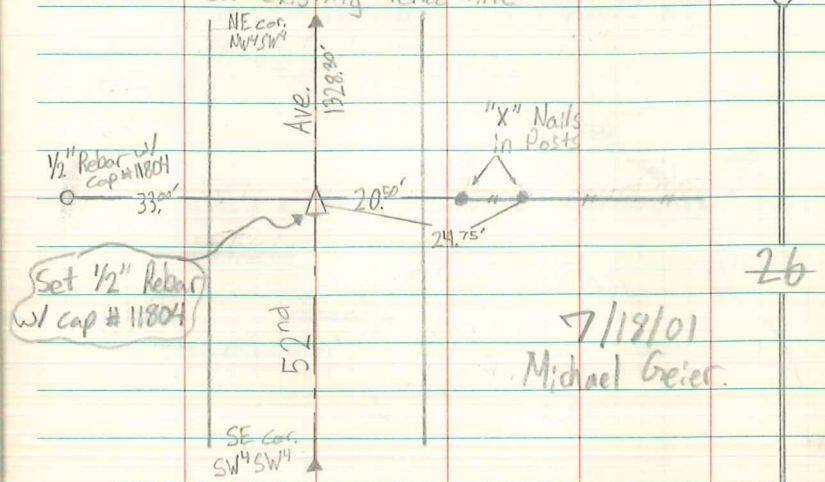 NE cor.
NW⁴SW⁴
Ave.
1328.30'
"X" Nails
in Posts
1/2" Rebar w/
cap #11804
33.00'
20.50'
24.75'
Set 1/2" Rebar
w/ cap # 11804
26
52nd
7/18/01
Michael Geier.
SE cor.
SW⁴SW⁴